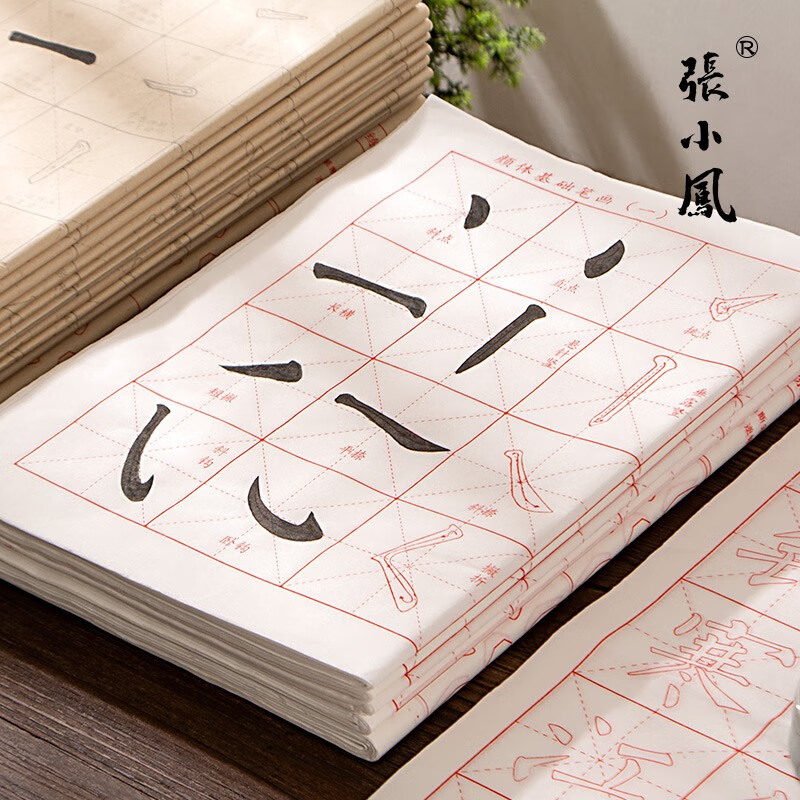 張小鳳®
颜体基础笔画(一)
斜点
直点
挑点
长横
悬针竖
垂露竖
短撇
平捺
斜捺
斜钩
卧钩
横折